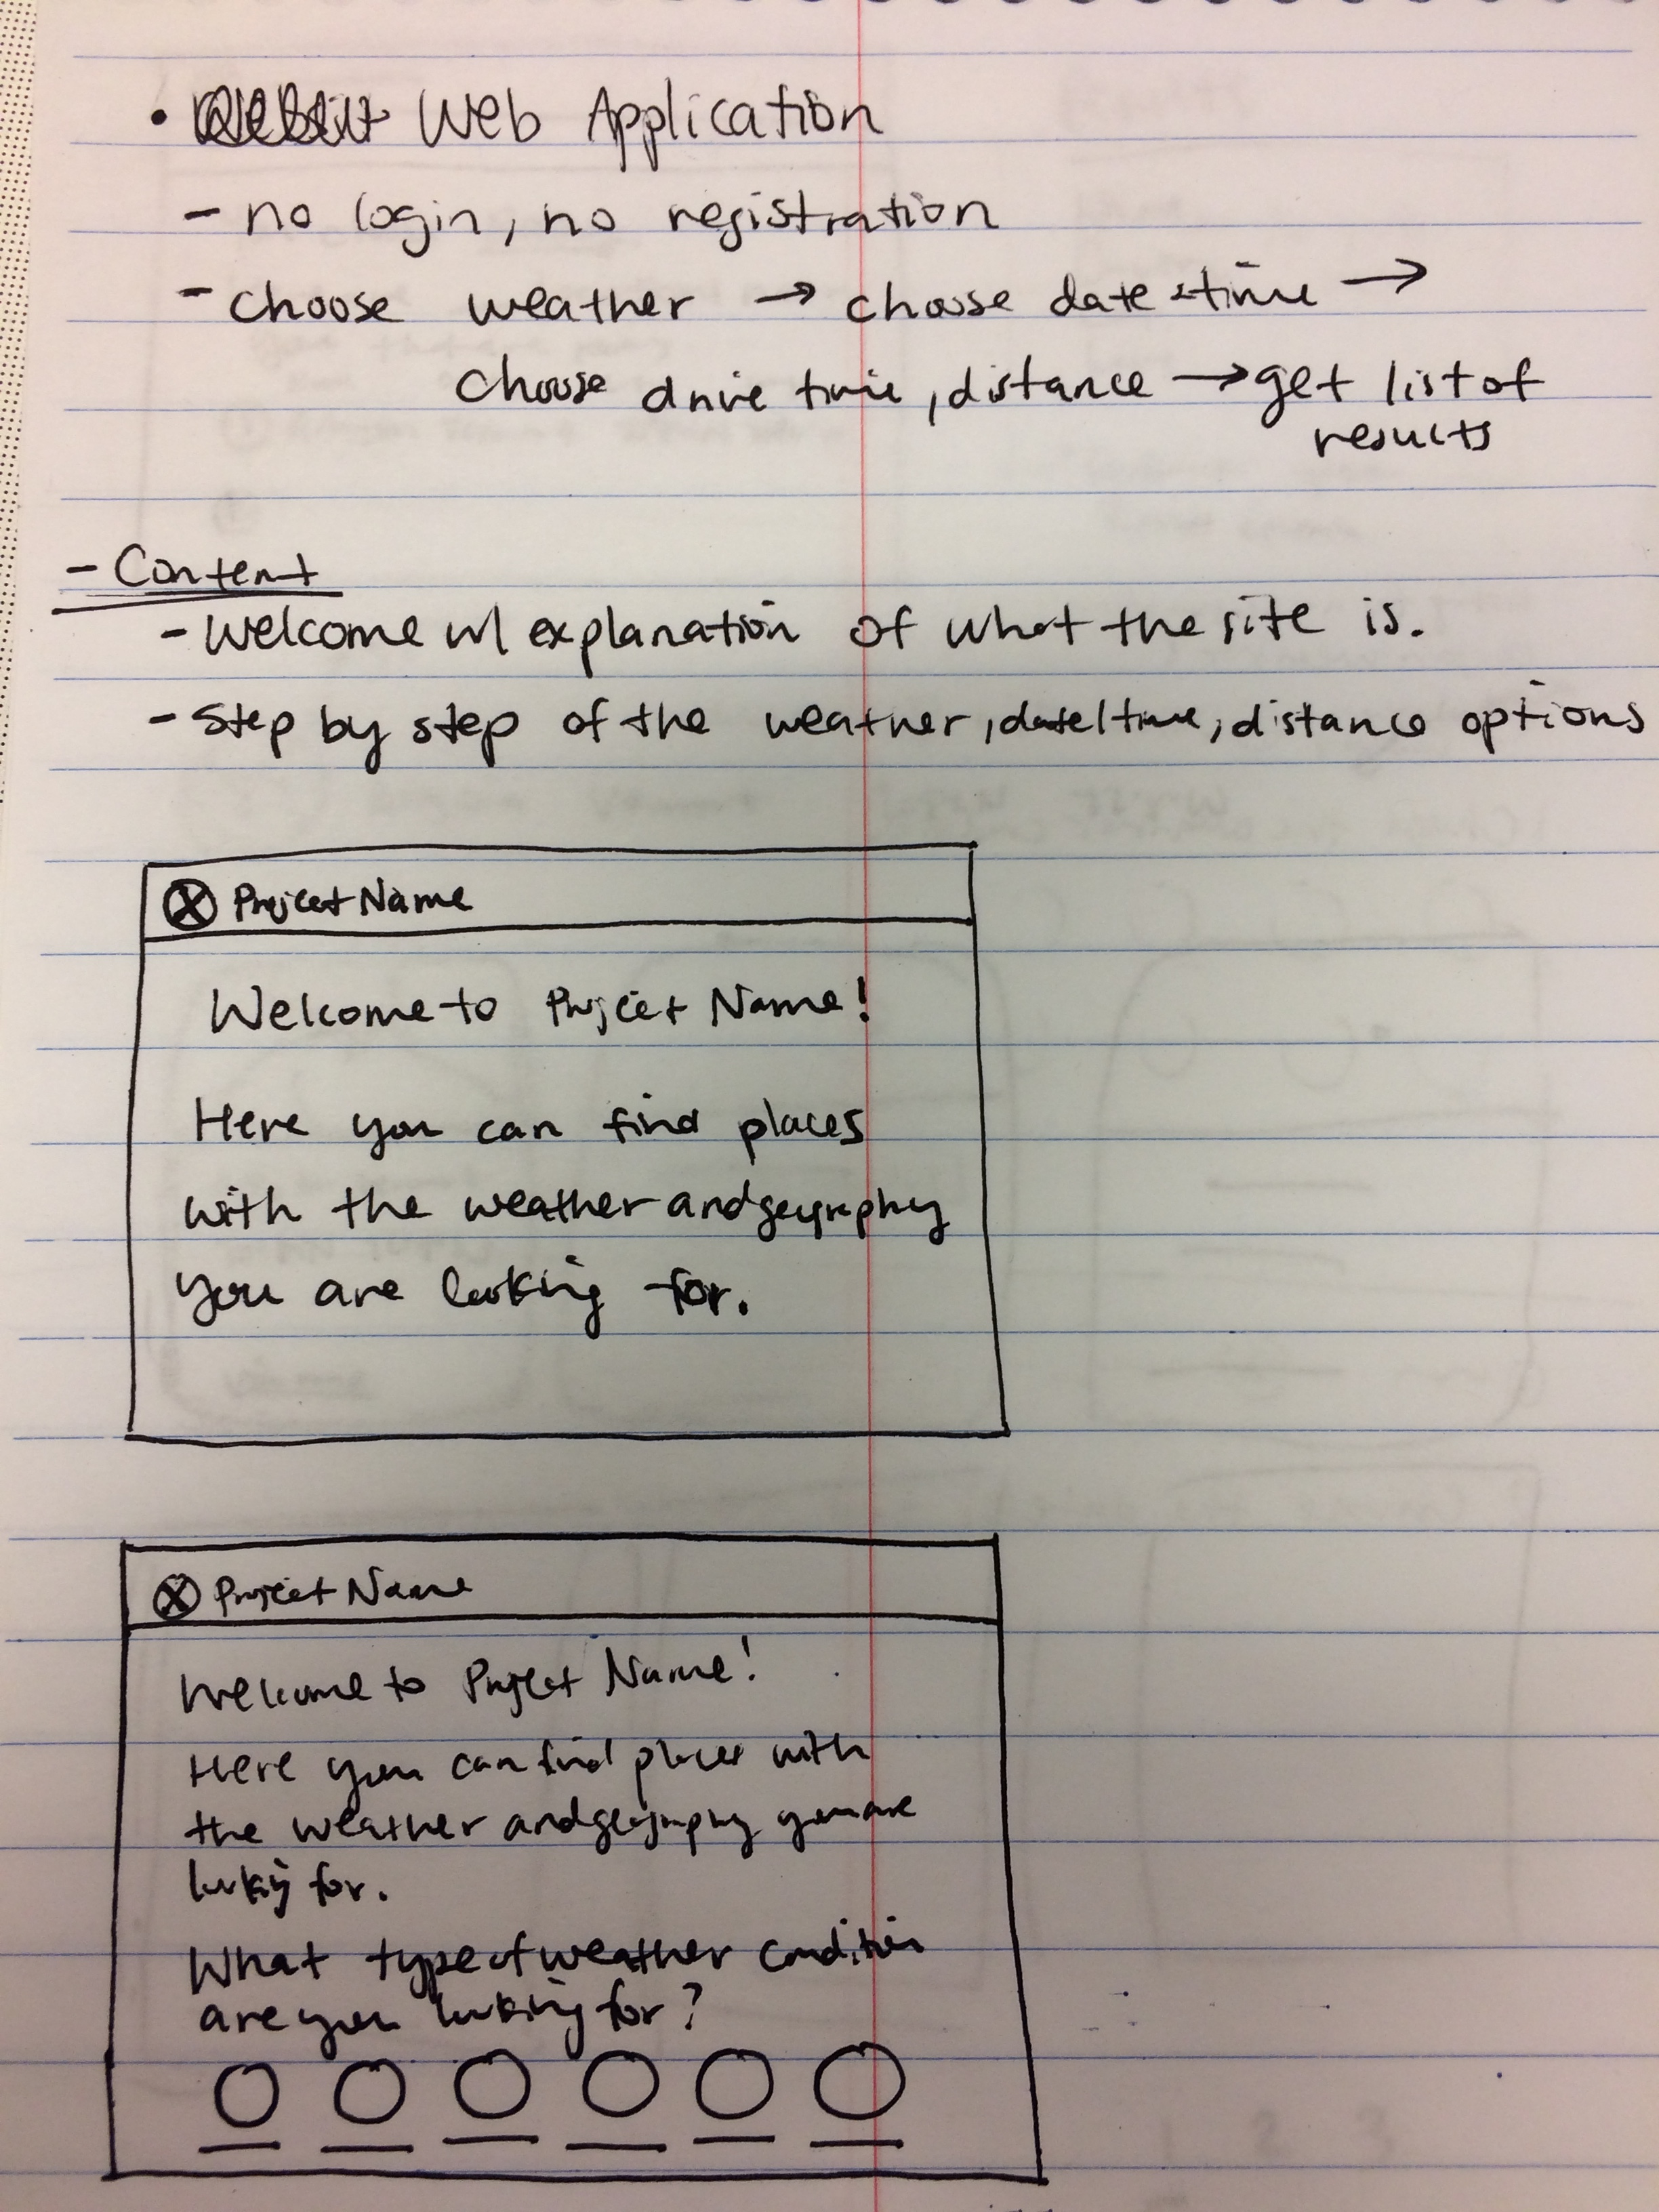 • Web Application
- no login, no registration
- choose weather → choose date + time →
choose drive time, distance → get list of
results
- Content
- Welcome w/ explanation of what the site is.
- Step by step of the weather, date/time, distance options
Project Name
Welcome to Project Name!
Here you can find places
with the weather and geography
you are looking for.
Project Name
Welcome to Project Name!
Here you can find places with
the weather and geography you are
looking for.
What type of weather condition
are you looking for?